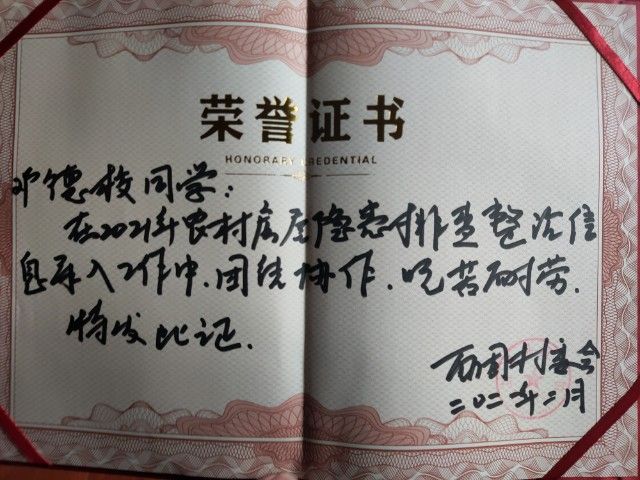 荣誉证书
HONORARY CREDENTIAL
邓德校同学：
在2021年农村房屋隐患排查整治信
息录入工作中、团结协作、吃苦耐劳.
特发此证.
村委会
二〇二一年二月